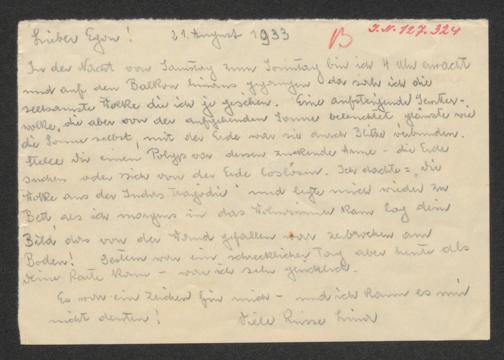 Lieber Egon! 21. August 1933 B I.N. 127.324
In der Nacht von Samstag zum Sonntag bin ich 4 Uhr erwacht
und auf den Balkon hinaus gegangen da sah ich die
seltsamste Wolke die ich je gesehen. Eine aufsteigende Gewitter-
wolke, die aber von der aufgehenden Sonne beleuchtet glänzte wie
die Sonne selbst, mit der Erde war sie durch Blitze verbunden.
Stelle dir einen Polyp vor dessen zuckende Arme - die Erde
suchen oder sich von der Erde loslösen. Ich dachte: "die
Wolke aus der Indras Tragödie" und legte mich wieder zu
Bett als ich morgens in das Wohnzimmer kam lag dein
Bild das von der Wand gefallen war zerbrochen am
Boden! Gestern war ein schrecklicher Tag aber heute als
deine Karte kam - war ich sehr glücklich.
Es war ein Zeichen für mich - und ich kann es mir
nicht deuten! Viele Küsse Lina